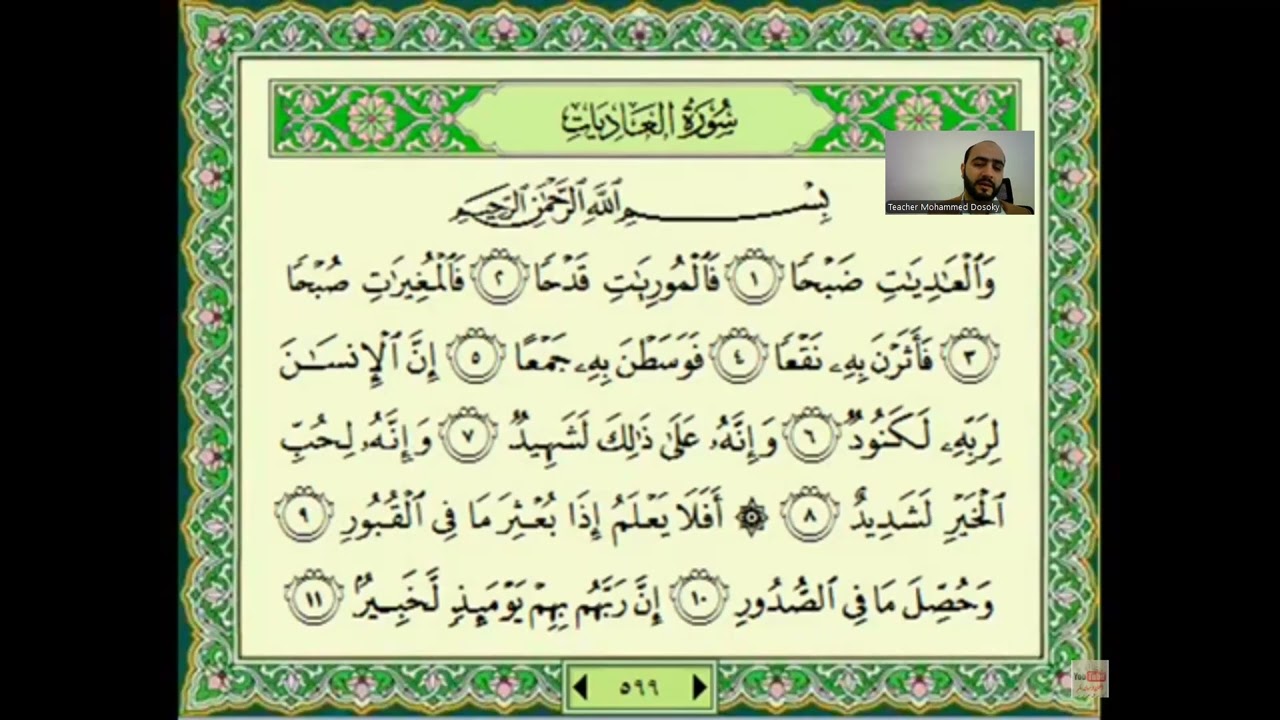 سُورَةُ العَادِيَاتِ
بِسْمِ ٱللَّهِ ٱلرَّحْمَٰنِ ٱلرَّحِيمِ
Teacher Mohammed Dosoky
وَٱلْعَٰدِيَٰتِ ضَبْحًا ١ فَٱلْمُورِيَٰتِ قَدْحًا ٢ فَٱلْمُغِيرَٰتِ صُبْحًا
٣ فَأَثَرْنَ بِهِۦ نَقْعًا ٤ فَوَسَطْنَ بِهِۦ جَمْعًا ٥ إِنَّ ٱلْإِنسَٰنَ
لِرَبِّهِۦ لَكَنُودٌ ٦ وَإِنَّهُۥ عَلَىٰ ذَٰلِكَ لَشَهِيدٌ ٧ وَإِنَّهُۥ لِحُبِّ
ٱلْخَيْرِ لَشَدِيدٌ ٨ ۞ أَفَلَا يَعْلَمُ إِذَا بُعْثِرَ مَا فِى ٱلْقُبُورِ ٩
وَحُصِّلَ مَا فِى ٱلصُّدُورِ ١٠ إِنَّ رَبَّهُم بِهِمْ يَوْمَئِذٍ لَّخَبِيرٌۢ ١١
٥٩٩
YouTube